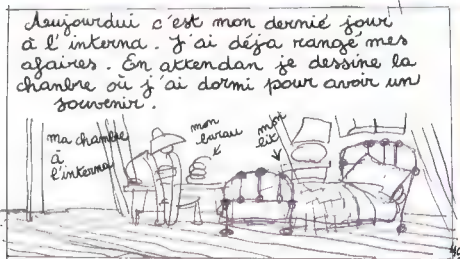 Aujourdui c'est mon dernié jour
à l'interna. J'ai déja rangé mes
afaires. En attendan je dessine la
chanbre où j'ai dormi pour avoir un
souvenir.
ma chambre
à
l'interna
mon
burau
mon
lit